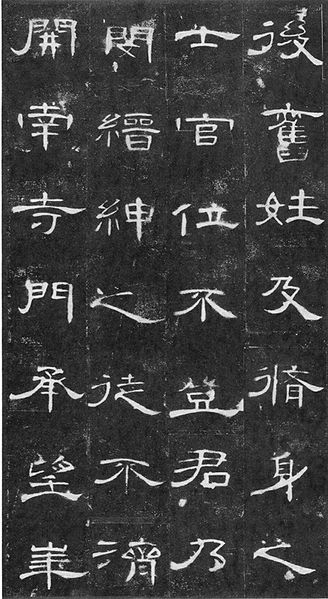 後舊姓及脩身之
士官位不登君乃
閔縉紳之徒不濟
開寺門承望華